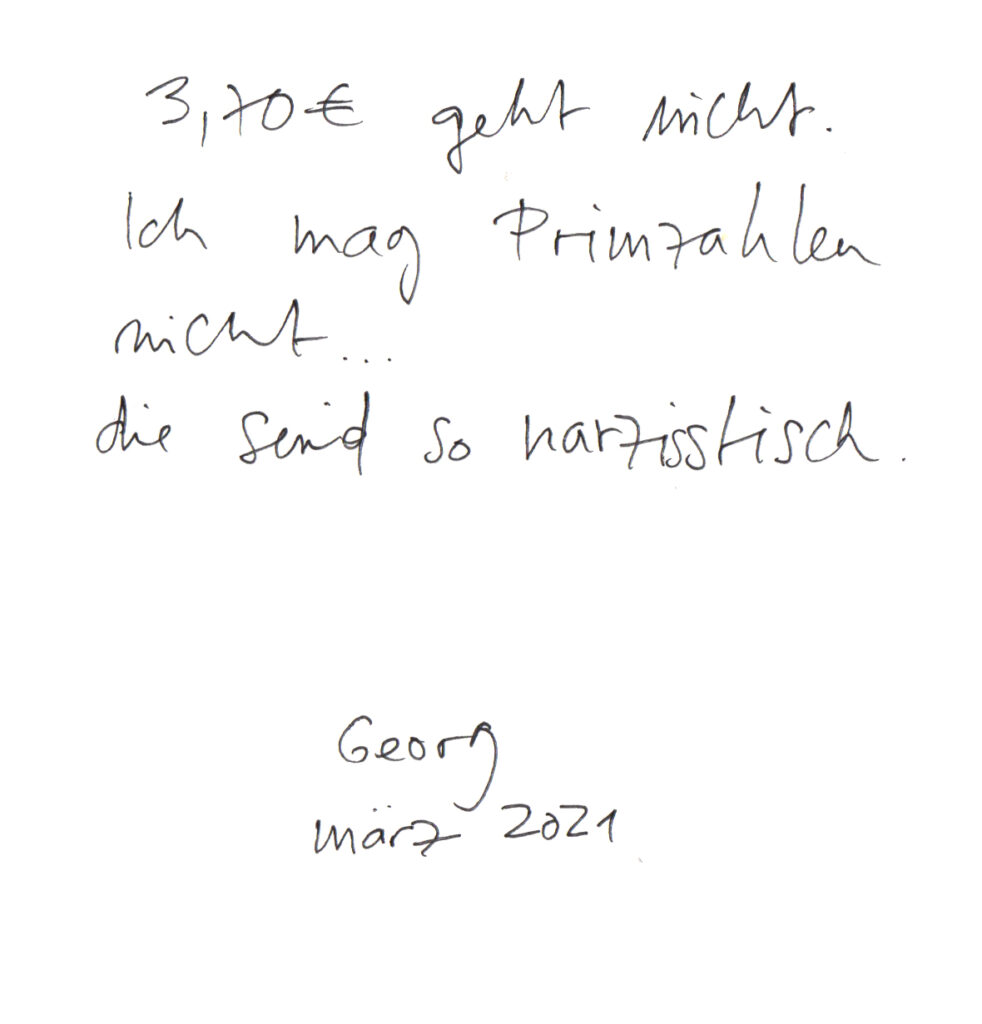 3,70€ geht nicht.
Ich mag Primzahlen
nicht...
die sind so narzisstisch.
Georg
märz 2021